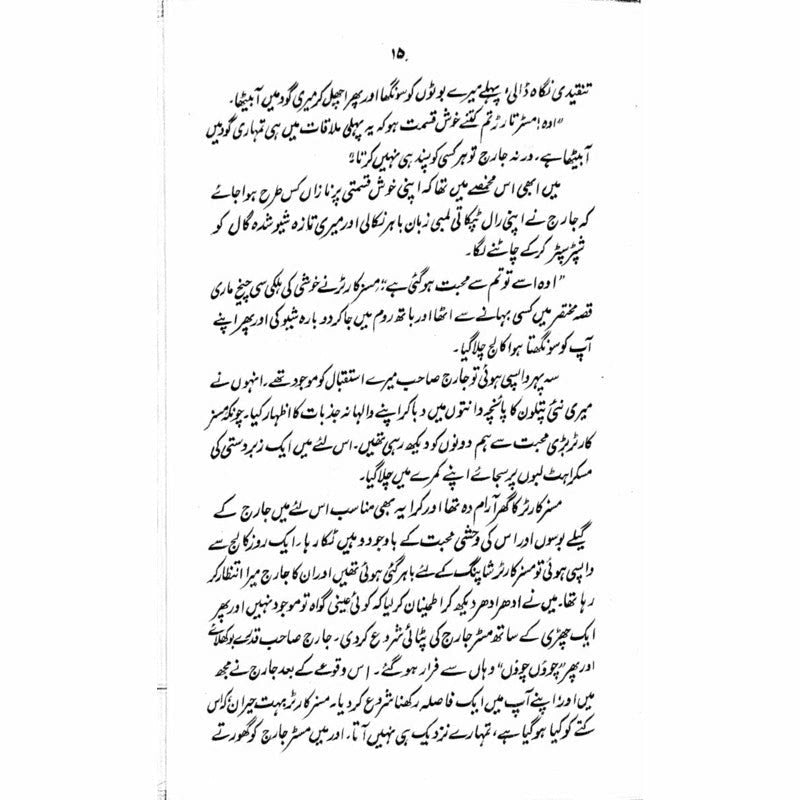 ۱۵
تنقیدی نگاہ ڈالی، پہلے میرے بوٹوں کو سونگھا اور پھر اچھل کر میری گود میں آ بیٹھا۔
"اوہ! مسٹر تارڑ تم کتنے خوش قسمت ہو کہ یہ پہلی ملاقات میں ہی تمہاری گود میں
آ بیٹھا ہے، ورنہ جارج تو ہر کسی کو پسند ہی نہیں کرتا۔"
میں ابھی اس مخمصے میں تھا کہ اپنی خوش قسمتی پر نازاں کس طرح ہوا جائے
کہ جارج نے اپنی رال ٹپکاتی لمبی زبان باہر نکالی اور میری تازہ شیو شدہ گال کو
شپڑ سپڑ کر کے چاٹنے لگا۔
"اوہ اسے تو تم سے محبت ہو گئی ہے"، مسز کارٹر نے خوشی کی ہلکی سی چیخ ماری
قصہ مختصر میں کسی بہانے سے اٹھا اور باتھ روم میں جا کر دوبارہ شیو کی اور پھر اپنے
آپ کو سونگھتا ہوا کالج چلا گیا۔
سہ پہر واپسی ہوئی تو جارج صاحب میرے استقبال کو موجود تھے۔ انہوں نے
میری نئی پتلون کا پائنچہ دانتوں میں دبا کر اپنے والہانہ جذبات کا اظہار کیا۔ چونکہ مسز
کارٹر بڑی محبت سے ہم دونوں کو دیکھ رہی تھیں۔ اس لئے میں ایک زبردستی کی
مسکراہٹ لبوں پر سجائے اپنے کمرے میں چلا گیا۔
مسز کارٹر کا گھر آرام دہ تھا اور کرایہ بھی مناسب اس لئے میں جارج کے
گیلے بوسوں اور اس کی وحشی محبت کے باوجود وہیں ٹکا رہا۔ ایک روز کالج سے
واپسی ہوئی تو مسز کارٹر شاپنگ کے لئے باہر گئی ہوئی تھیں اور ان کا جارج میرا انتظار کر
رہا تھا۔ میں نے ادھر ادھر دیکھ کر اطمینان کر لیا کہ کوئی عینی گواہ تو موجود نہیں اور پھر
ایک چھڑی کے ساتھ مسٹر جارج کی پٹائی شروع کر دی۔ جارج صاحب قدرے بوکھلائے
اور پھر "چوؤں چوؤں" وہاں سے فرار ہو گئے۔ اس وقوعے کے بعد جارج نے مجھ
میں اور اپنے آپ میں ایک فاصلہ رکھنا شروع کر دیا۔ مسز کارٹر بہت حیران کہ اس
کتے کو کیا ہو گیا ہے، تمہارے نزدیک ہی نہیں آتا۔ اور میں مسٹر جارج کو گھورتے